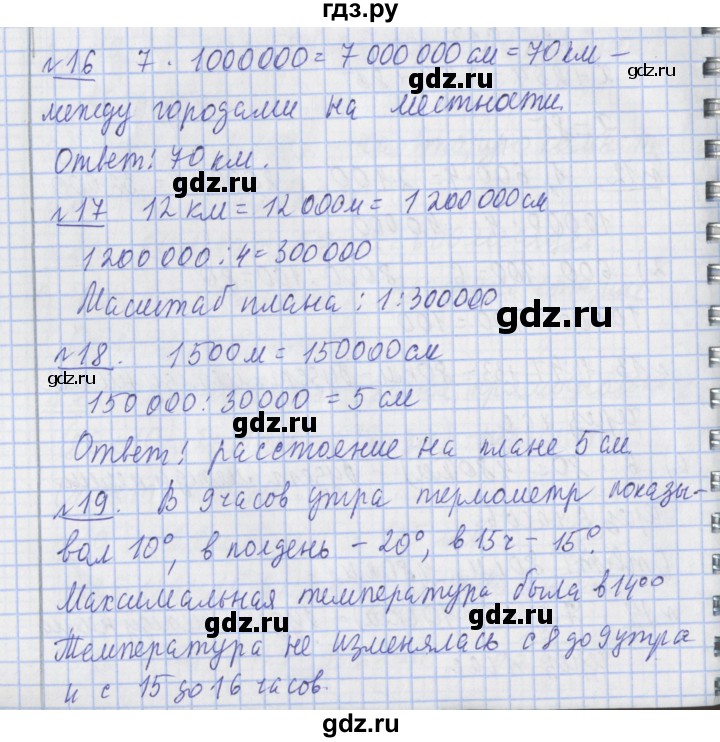 гдз.ру
№16 7 · 1000000 = 7 000 000 см = 70 км –
gdz.ru
между городами на местности.
gdz.ru
Ответ: 70 км.
gdz.ru
№17 12 км = 12 00см = 1 200 000см
gdz.ru
1200000 : 4 = 300000
Масштаб плана : 1:300000
gdz.ru
№18. 1500м = 150000см
gdz.ru
150 000 : 30000 = 5 см
gdz.ru
Ответ: расстоение на плане 5 см
№19. В 9часов утра термометр показы-
gdz.ru
вал 10°, в полдень – 20°, в 15ч – 15°.
gdz.ru
Максимальная температура была в 14°°
gdz.ru
Температура не изменялась с 8 до 9 утра
и с 15 до 16 часов.
gdz.ru
gdz.ru